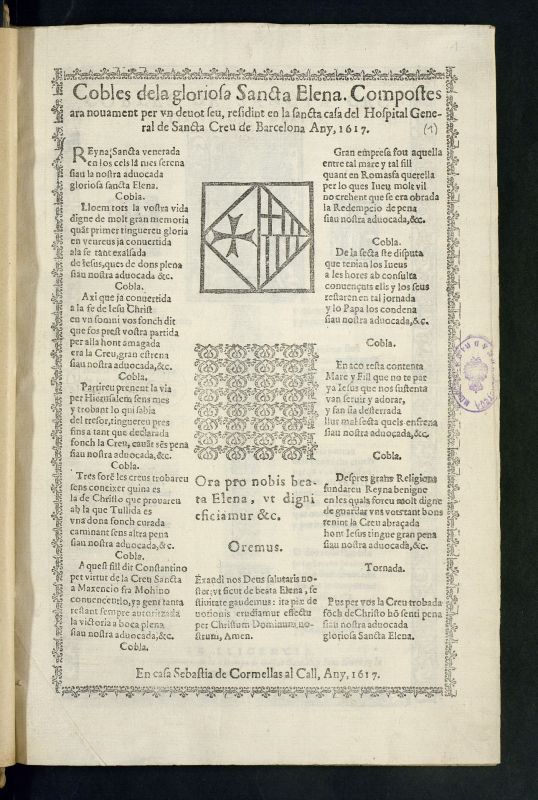 Cobles dela gloriosa Sancta Elena. Compostes
ara nouament per vn deuot seu, residint en la sancta casa del Hospital Gene-
ral de Sancta Creu de Barcelona Any, 1617.
(1)
REyna, Sancta venerada
en los cels la mes serena
siau la nostra aduocada
gloriosa sancta Elena.
Cobla.
Lloem tots la vostra vida
digne de molt gran memoria
quãt primer tinguereu gloria
en veureus ja conuertida
ala fe tant exalsada
de Iesus, ques de dons plena
siau nostra aduocada &c.
Cobla.
Axi que ja conuertida
a la fe de Iesu Christ
en vn somni vos fonch dit
que fos prest vostra partida
per alla hont amagada
era la Creu, gran estrena
siau nostra aduocada,&c.
Cobla.
Partireu prenent la via
per Hierusalem sens mes
y trobant lo qui sabia
del tresor, tinguereu pres
fins a tant que declarada
fonch la Creu, cauãt sẽs pena
siau nostra aduocada,&c.
Cobla.
Tres foré les creus trobareu
sens coneixer quina es
la de Christo que prouareu
ab la que Tullida es
vna dona fonch curada
caminant sens altra pena
siau nostra aduocada,&c.
Cobla.
Aquest fill dit Constantino
per virtut de la Creu Sancta
a Maxencio fra Mohino
conuencentlo, ya gent tanta
restant sempre autoritzada
la victoria a boca plena
siau nostra aduocada,&c.
Cobla.
Ora pro nobis bea-
ta Elena, vt digni
eficiamur &c.
Oremus.
Exandi nos Deus salutaris no-
ster; vt sicut de beata Elena, fe
stiuitate gaudemus: ita piæ de
uotionis erudiamur effectu
per Christum Dominum, no-
strum, Amen.
Gran empresa fou aquella
entre tal mare y tal fill
quant en Romasfa querella
per lo ques Iueu molt vil
no crehent que se era obrada
la Redempcio de pena
siau nostra aduocada,&c.
Cobla.
De la secta ste disputa
que tenian los Iueus
a les hores ab consulta
conuençuts ells y los seus
restaren en tal jornada
y lo Papa los condena
siau nostra aduocada,&c.
Cobla.
En aço resta contenta
Mare y Fill que no te par
ya Iesus que nos sustenta
van seruir y adorar,
y san sia desterrada
llur mal secta quels enfrena
siau nostra aduocada,&c.
Cobla.
Despres grans Religions
fundareu Reyna benigne
en les quals foreu molt digne
de guardar vns vots tant bons
tenint la Creu abraçada
hom Iesus tingue gran pena
siau nostra aduocada,&c.
Tornada.
Pus per vos la Creu trobada
fõch de Christo hõ senti pena
siau nostra aduocada
gloriosa Sancta Elena.
En casa Sebastia de Cormellas al Call, Any, 1617.